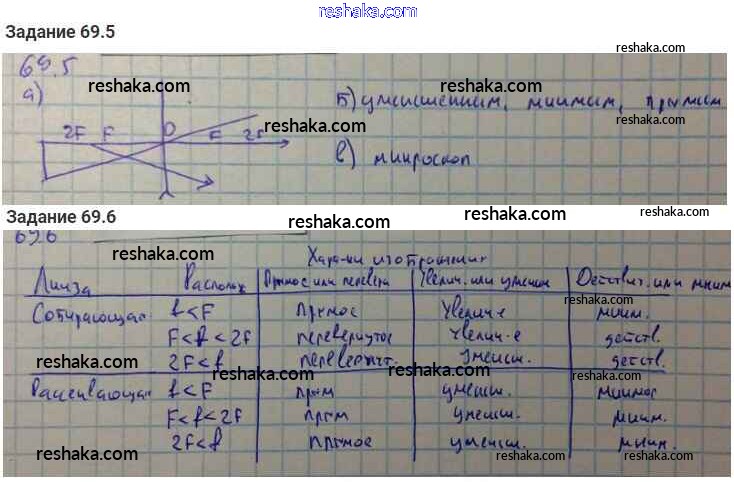 reshaka.com
Задание 69.5
reshaka.com
69.5
reshaka.com
а)
Б) уменьшенным, мнимым, прямым
reshaka.com
2F F O F 2F
reshaka.com
в) микроскоп
reshaka.com
reshaka.com
Задание 69.6
reshaka.com
reshaka.com
69.6
reshaka.com
Линза
Располож
Прямое или переверн
Увелич. или уменьш
Действит. или мним
Собирающая f<F прямое увелич-е мним.
reshaka.com
F<f<2F перевернутое увелич-е действ.
2F<f переверnут. уменьш. действ.
reshaka.com
reshaka.com
reshaka.com
Рассеивающая f<F прям уменьш. мнимое
reshaka.com
F<f<2F прям уменьш. мним.
2F<f прямое уменьш. мним.
reshaka.com
reshaka.com
reshaka.com